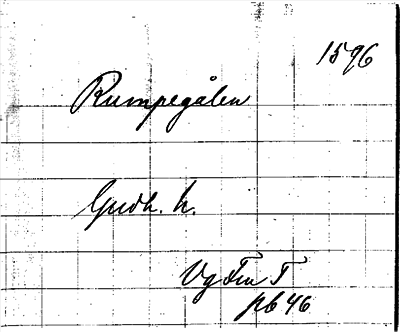 1596
Rumpegålen
Gudh. h.
Vg Fru T
pb 46